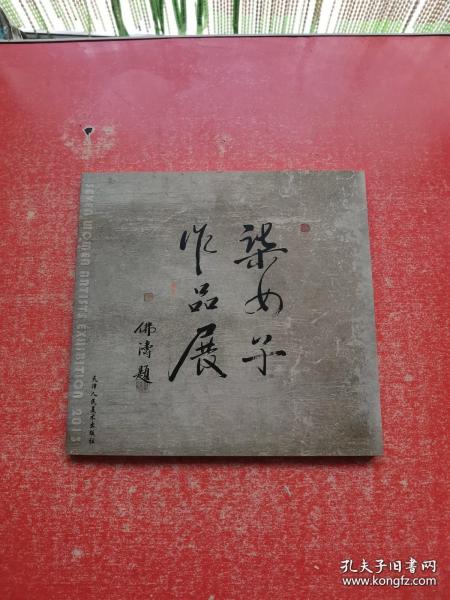 柒女子
作品展
佛濤題
SEVEN WOMEN ARTISTS EXHIBITION 2013
天津人民美术出版社
孔夫子旧书网
www.kongfz.com